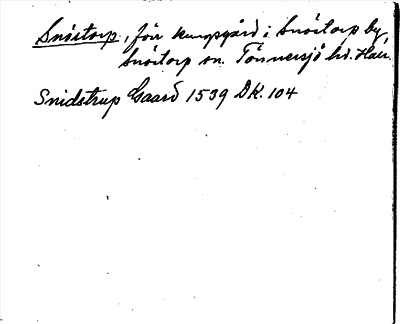 Snöstorp, förr kungsgård i Snöstorp by,
Snöstorp sn. Tönnersjö hd. Hall.
Snidstrup Gaard 1539 DK. 104